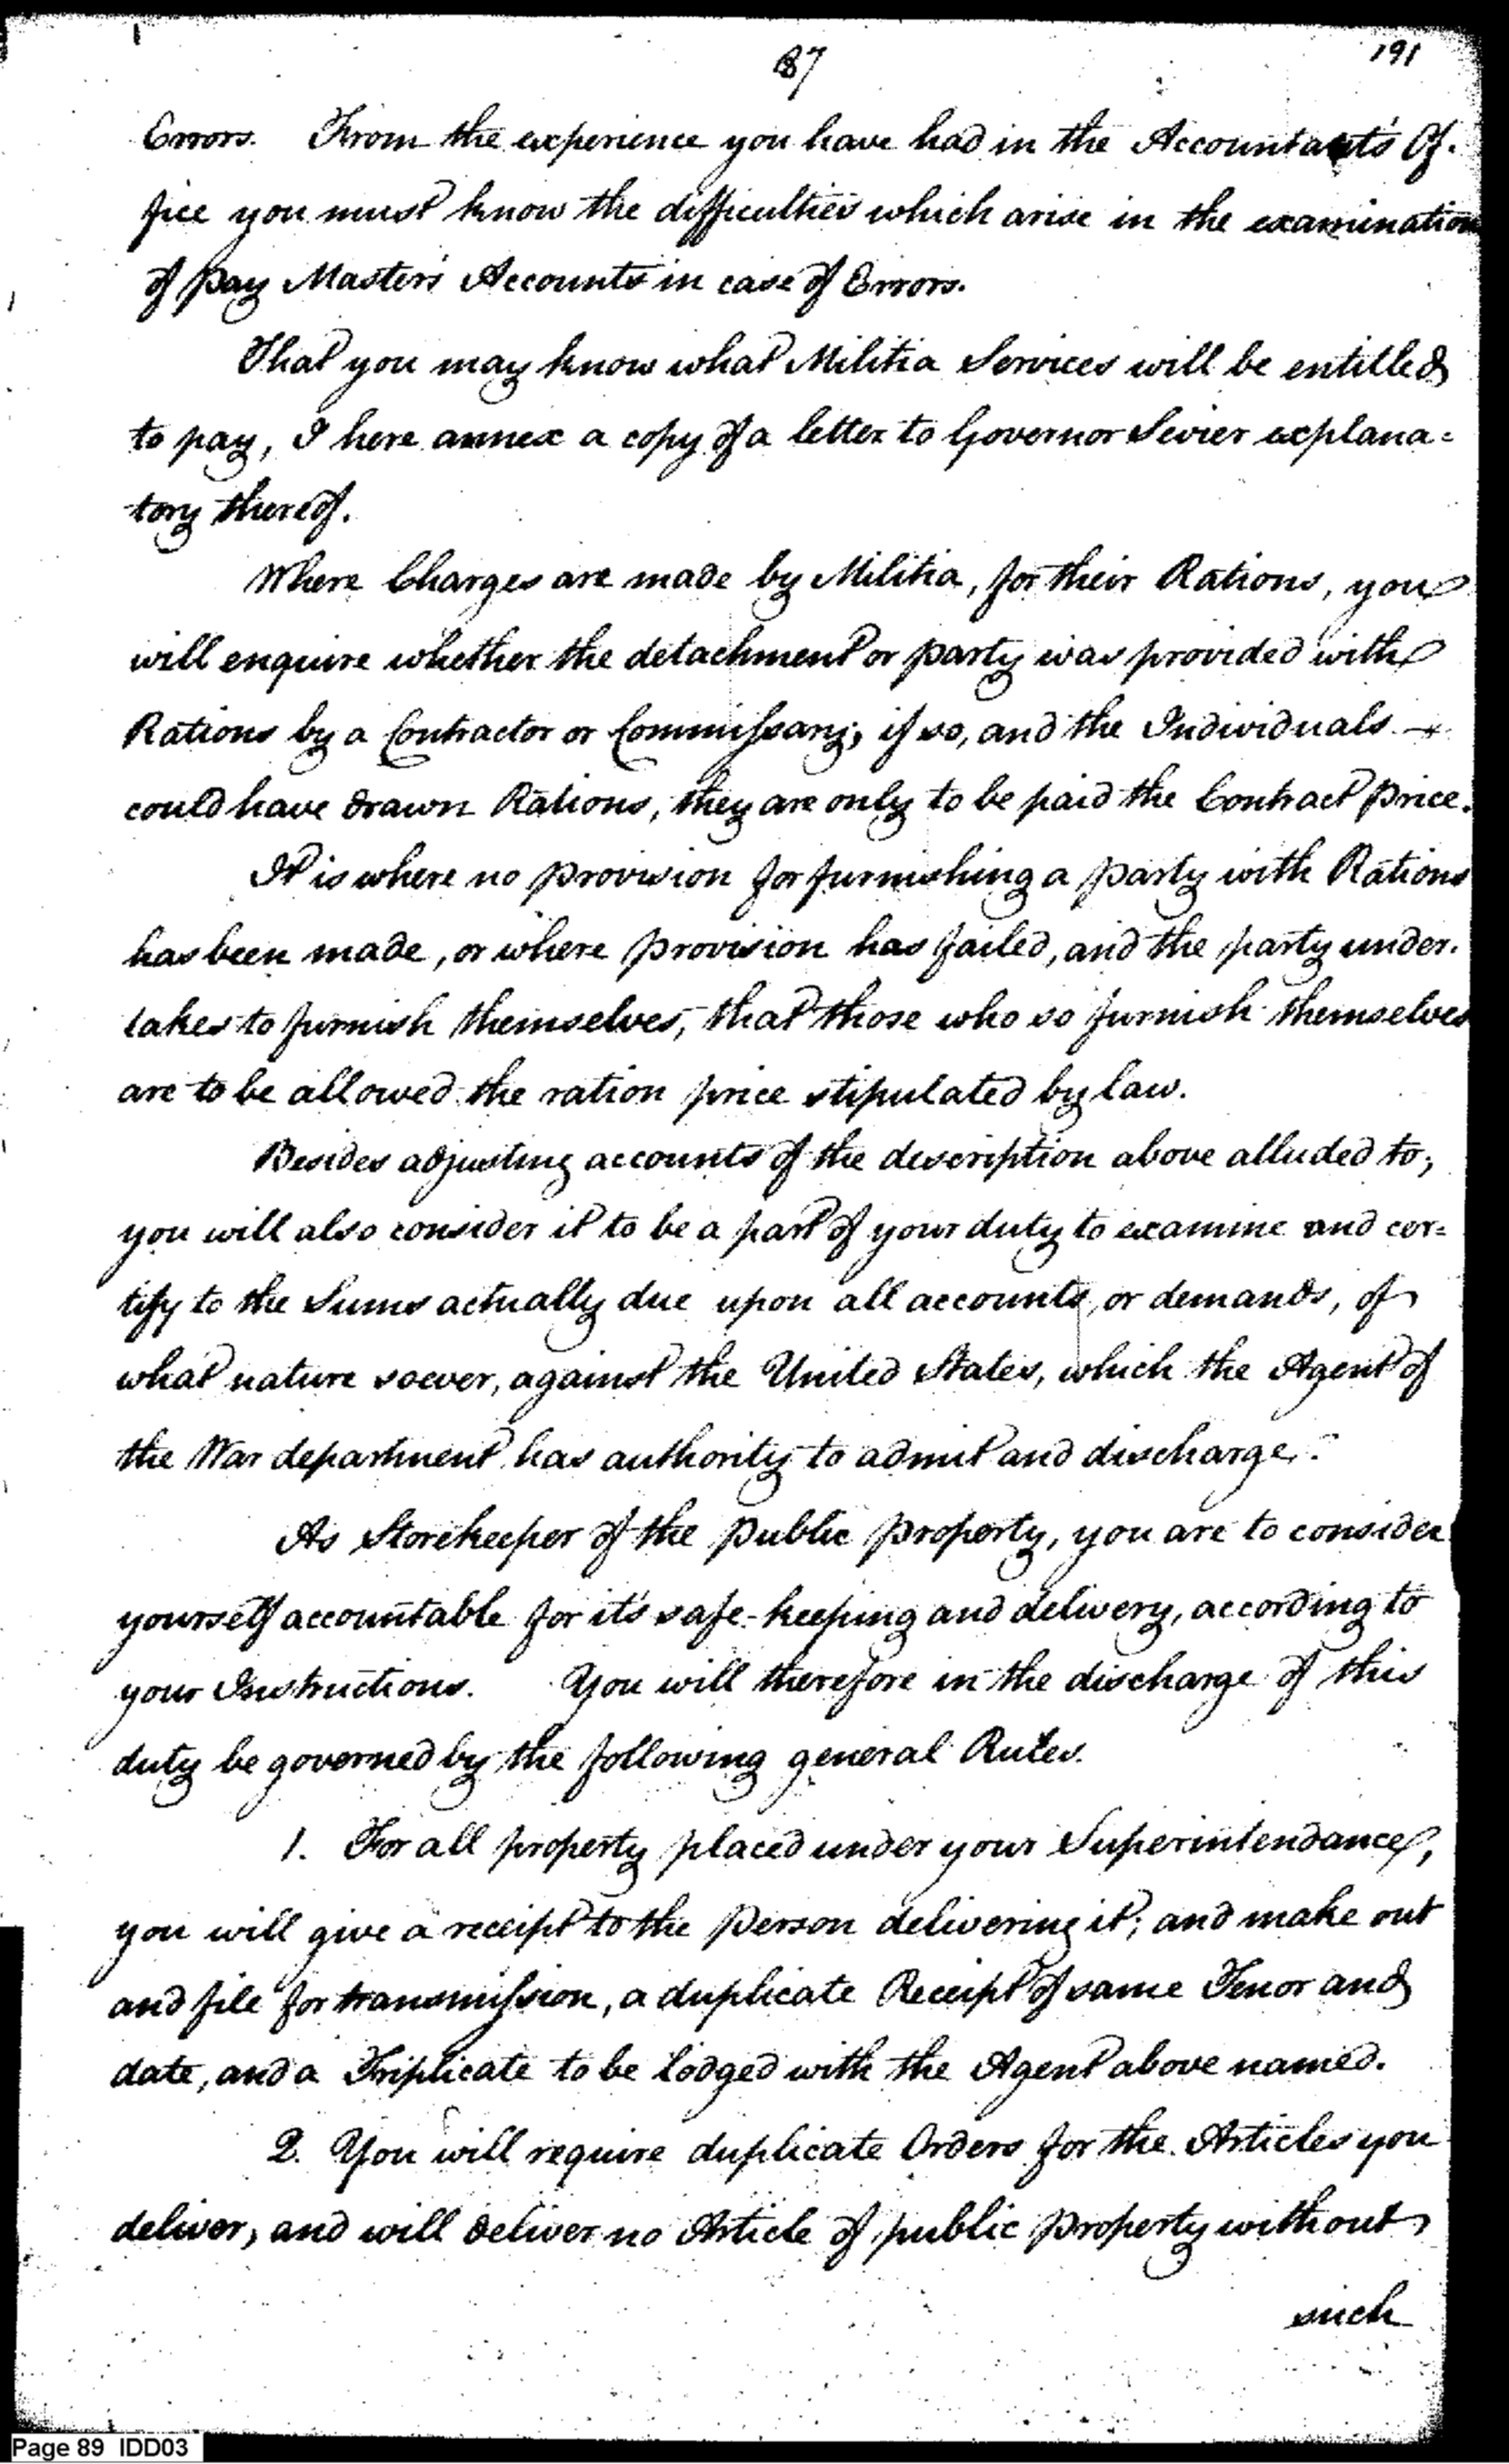 87
191
Errors. From the experience you have had in the Accountant's Of-
fice you must know the difficulties which arise in the examination
of pay Master's Accounts in case of Errors.
That you may know what Militia Services will be entitled
to pay, I here annex a copy of a letter to Governor Sevier explana=
tory thereof.
Where Charges are made by Militia, for their Rations, you
will enquire whether the detachment or party was provided with
Rations by a Contractor or Commissary; if so, and the Individuals
could have drawn Rations, they are only to be paid the Contract price.
It is where no provision for furnishing a party with Rations
has been made, or where provision has failed, and the party under-
takes to furnish themselves, that those who so furnish themselves
are to be allowed the ration price stipulated by law.
Besides adjusting accounts of the description above alluded to;
you will also consider it to be a part of your duty to examine and cer=
tify to the Sums actually due upon all accounts, or demands, of
what nature soever, against the United States, which the Agent of
the War department has authority to admit and discharge.
As Storekeeper of the public property, you are to consider
yourself accountable for it's safe-keeping and delivery, according to
your Instructions. You will therefore in the discharge of this
duty be governed by the following general Rules.
1. For all property placed under your Superintendance,
you will give a receipt to the person delivering it; and make out
and file for transmission, a duplicate Receipt of same Tenor and
date, and a Triplicate to be lodged with the Agent above named.
2. You will require duplicate Orders for the Articles you
deliver, and will deliver no Article of public property without
such
Page 89 IDD03